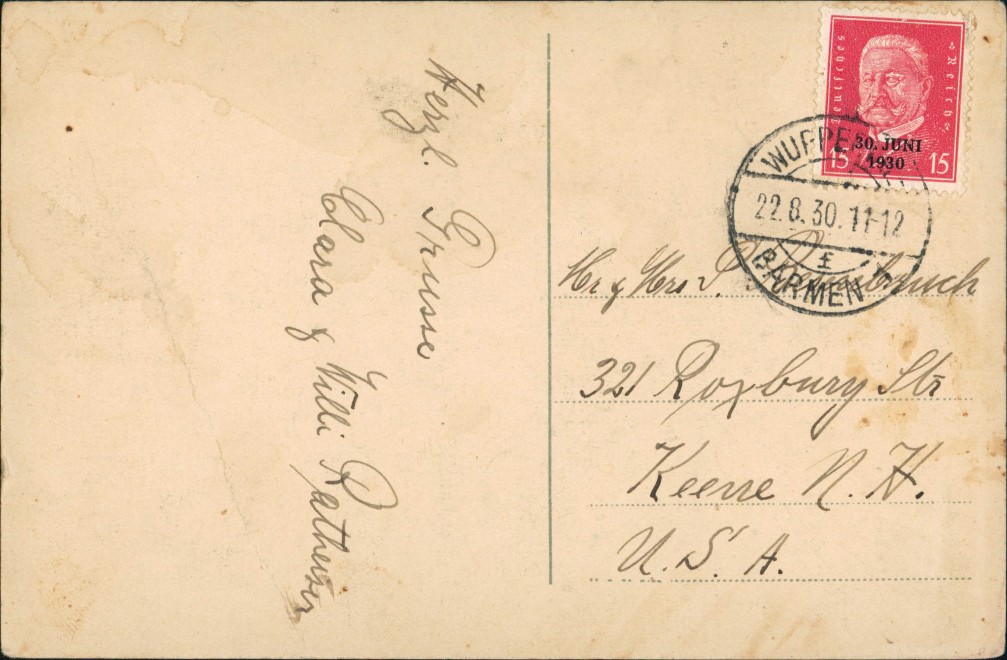 Herzl. Grüsse
Clara & Willi
Deutsches Reich
30. JUNI
1930
15 15
WUPPE
22.8.30.11-12
f
BARMEN
Mr & Mrs P.
321 Roxbury Str
Keene N. H.
U. S. A.